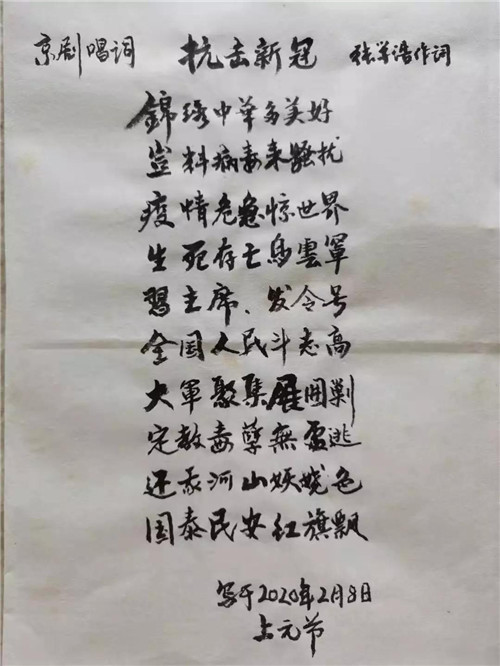 京剧唱词 抗击新冠 张学浩作词
錦绣中华多美好
豈料病毒来骚扰
疫情危急惊世界
生死存亡乌雲罩
習主席、发令号
全国人民斗志高
大軍聚集展围剿
定教毒孽無处逃
还我河山妖娆色
国泰民安红旗飘
写于2020年2月8日
上元节